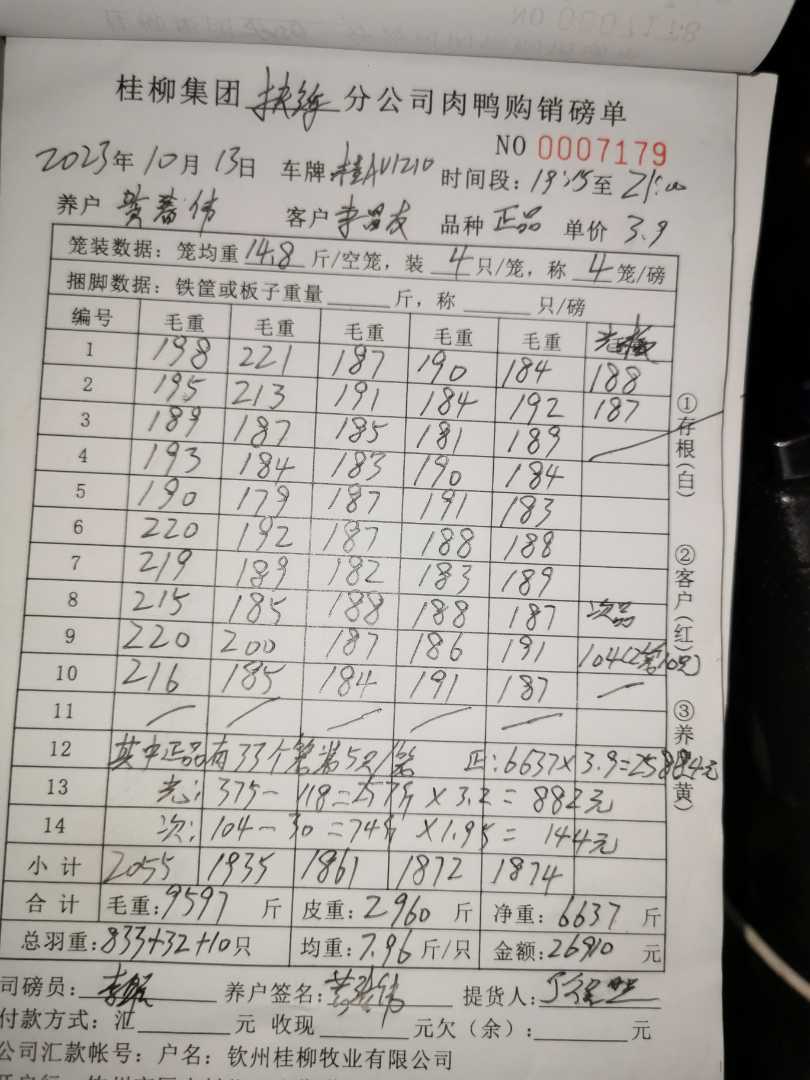 桂柳集团 扶绥 分公司肉鸭购销磅单
NO 0007179
2023年10月13日 车牌:桂AV1210 时间段:19:15至21:00
养户 黄春伟 客户 李昌友 品种 正品 单价 3.9
笼装数据:笼均重 14.8 斤/空笼,装 4 只/笼,称 4 笼/磅
捆脚数据:铁筐或板子重量 斤,称 只/磅
编号 毛重 毛重 毛重 毛重 毛重
1 198 221 187 190 184 188
2 195 213 191 184 192 187
3 189 187 185 181 189
4 193 184 183 190 184
5 190 179 187 191 183
6 220 192 187 188 188
7 219 189 182 183 189
8 215 185 188 188 187 次品
9 220 200 187 186 191 104(2笼10只)
10 216 185 184 191 187
11
12 其中正品有33个笼装5只/笼 正:6637×3.9=25884元
13 光:375-118=257斤×3.2=882元
14 次:104-30=74斤×1.95=144元
小计 2055 1935 1861 1872 1874
合计 毛重:9597 斤 皮重:2960 斤 净重:6637 斤
总羽重:833+32+10只 均重:7.96斤/只 金额:26910 元
司磅员: 养户签名:黄春伟 提货人:
付款方式:汇 元 收现 元欠(余): 元
公司汇款帐号:户名:钦州桂柳牧业有限公司
①存根(白) ②客户(红) ③养 黄)